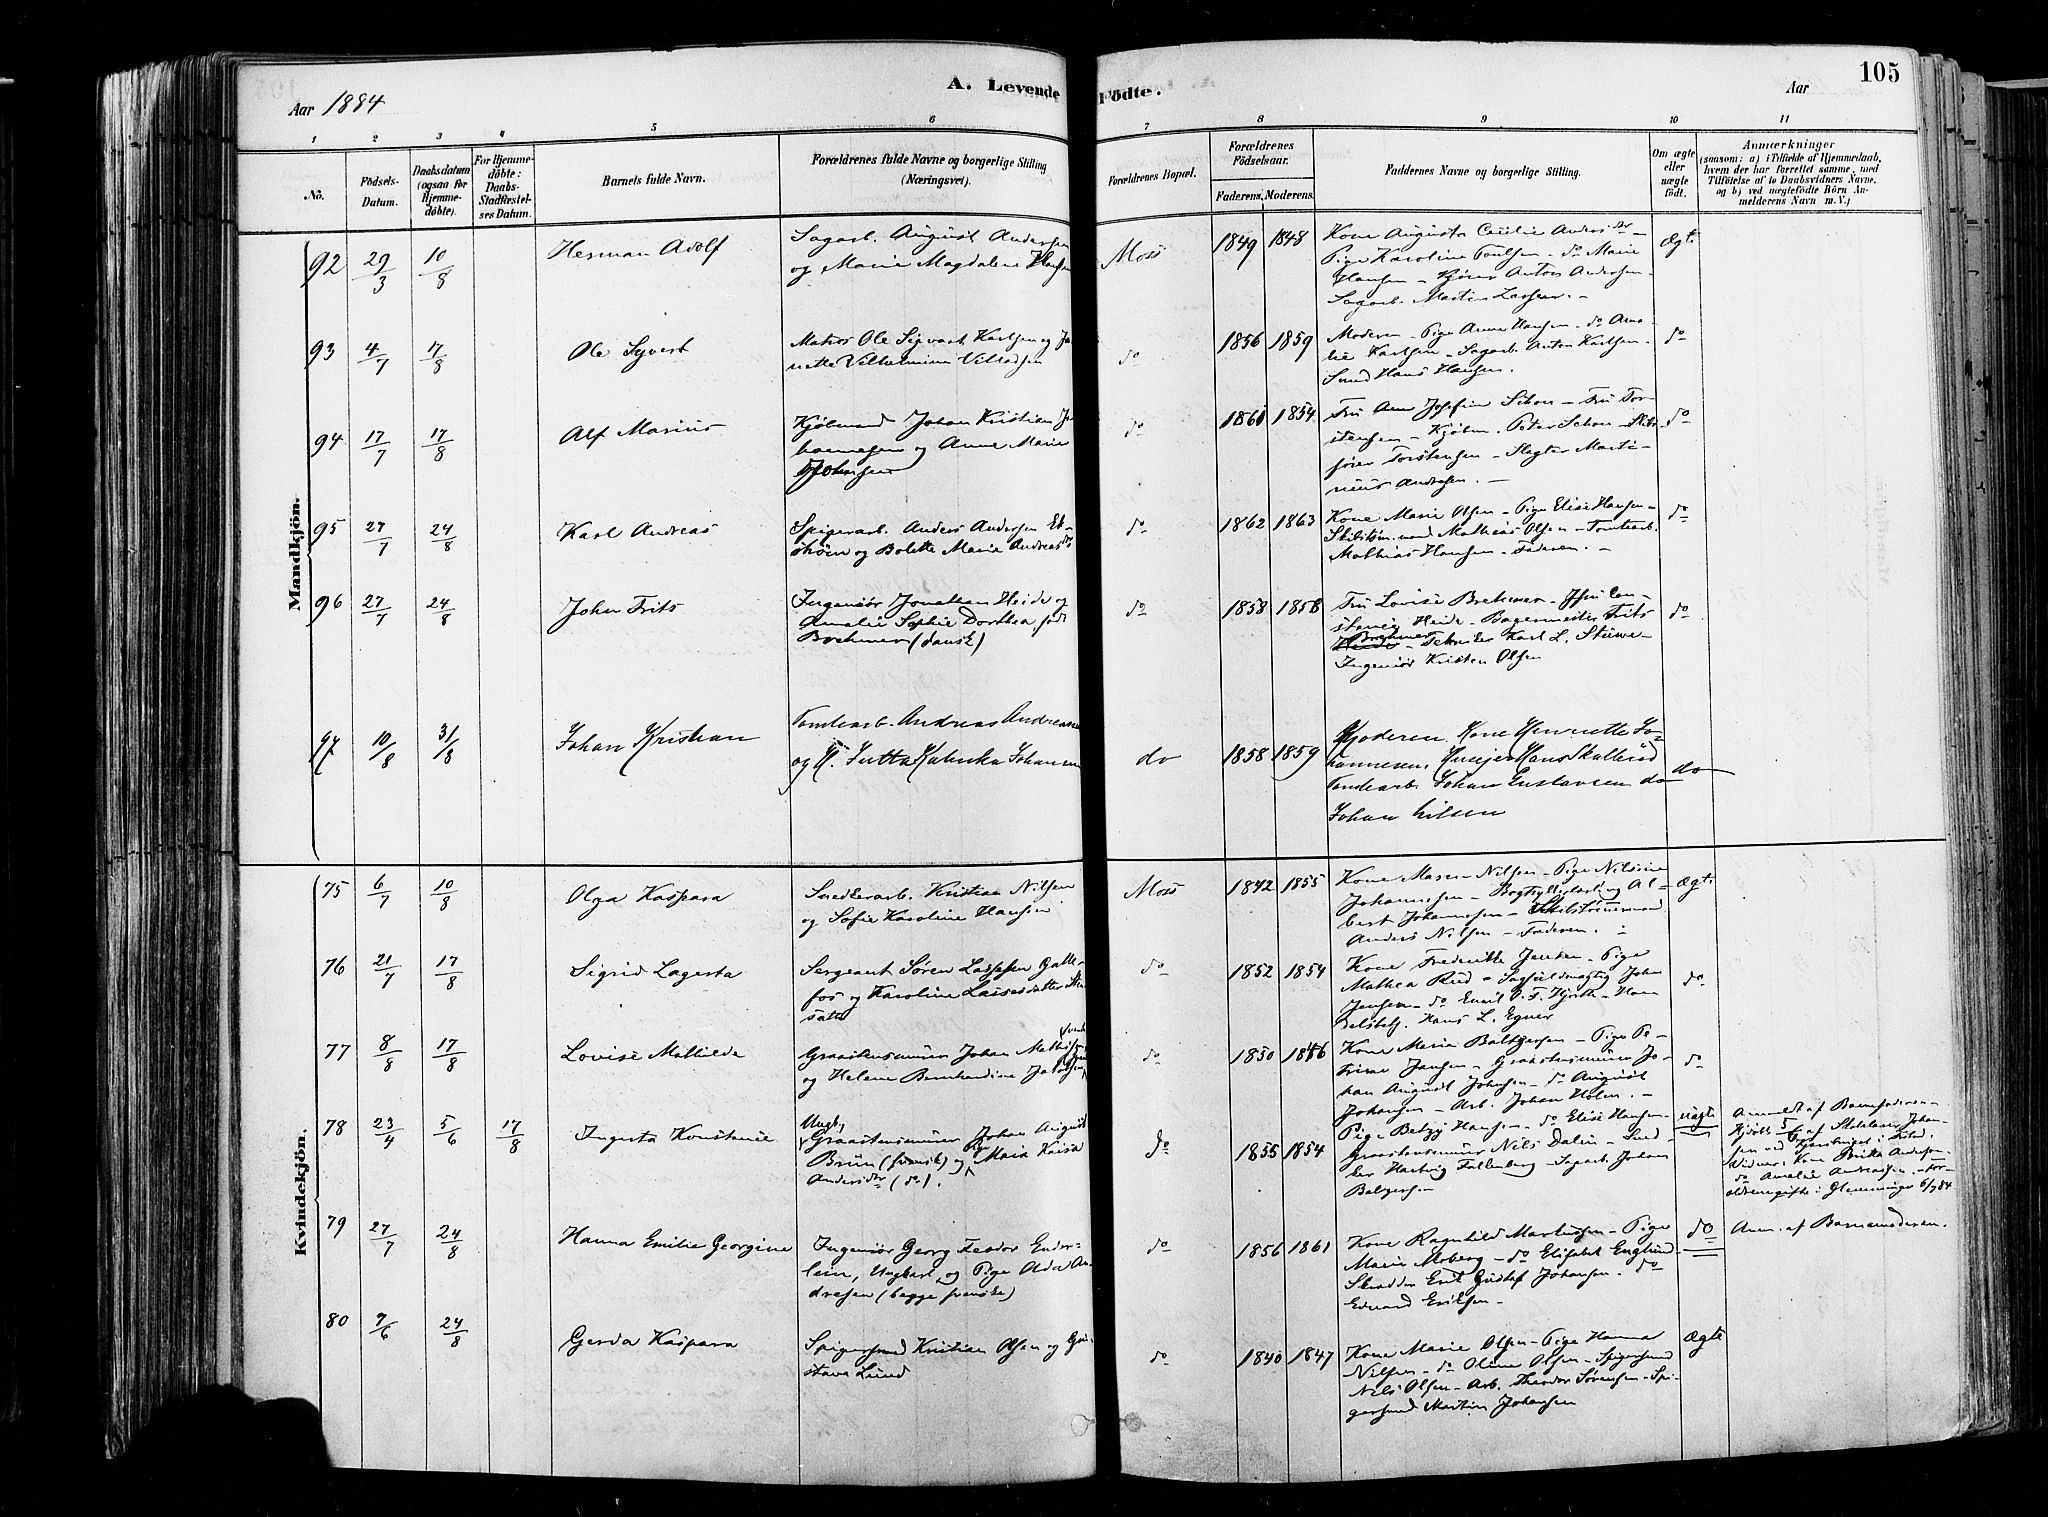 105
A. Levende Födte.
Aar 1884
Aar
1 2 3 4 5 6 7 8 9 10 11
No.
Födsels-Datum.
Daabsdatum (ogsaa for Hjemmedöbte).
For Hjemmedöbte: Daabs-Stadfæstelses Datum.
Barnets fulde Navn.
Forældrenes fulde Navne og borgerlige Stilling (Næringsvei).
Forældrenes Bopæl.
Forældrenes Födselsaar.
Faderens. Moderens.
Faddernes Navne og borgerlige Stilling.
Om ægte eller uægte födt.
Anmærkninger
(saasom: a) i Tilfælde af Hjemmedaab, hvem der har forrettet samme, med Tilföielse af to Daabsvidners Navne, og b) ved uægtefödte Börn Anmelderens Navn m. V.)
Mandkjön.
92 29/3 10/8 Herman Adolf
Sagarb. August Andersen
og Marie Magdalene Hansen
Moss 1849 1848
Kone Augusta Cecilie Andersdtr –
Pige Karoline Poulsen – do Marie
Hansen – Kjører Anton Andersen –
Sagarb. Martin Larsen. –
Ægte
93 4/7 17/8 Ole Syvert
Matros Ole Sigvart Karlsen og Ja-
nette Vilhelmine Villadsen
do 1856 1859
Moderen – Pige Anne Hansen – do Ama-
lie Karlsen – Sagarb. Anton Karlsen –
Smed Hans Hansen.
do
94 17/7 17/8 Alf Marius
Kjølmand Johan Kristian Jo-
hannesen og Anne Marie
Johnsen
do 1861 1854
Fru Ane Josefine Schou – Fru Tor-
stensen – Kjøbm. Peter Schou – Skibs-
fører Torstensen – Slagter Marti-
nius Andresen. –
do
95 27/7 24/8 Karl Andreas
Spigerarb. Anders Andersen Ek-
strøm og Bolette Marie Andreasdtr
do 1862 1863
Kone Marie Olsen – Pige Elise Hansen –
Skibstm.mand Mathias Olsen – Tomtearb.
Mathias Hansen – Faderen. –
do
96 27/7 24/8 John Frits
Ingeniør Jonathan Heide og
Amalie Sophie Dorthea, født
Brehmer (dansk)
do 1858 1858
Fru Lovise Brehmer – Con-
stance Heide – Bagermester Frits
Brehmer – Tekniker Karl L. Stüwe –
Ingeniør Kristen Olsen
do
97 10/8 31/8 Johan Kristian
Tomtearb. Andreas Andreasen
og H. Jutta Kathinka Johansen
do 1858 1859
Moderen, Kone Henriette Jo-
hannesen, Hans Skallerud
Tomtearb. Johan Gustavsen do
Johan Nilsen
do
Kvindekjön.
75 6/7 10/8 Olga Kaspara
Snedkerarb. Kristian Nilsen
og Sofie Karoline Hansen
Moss 1842 1855
Kone Maren Nilsen – Pige Nilsine
Johannesen – Al-
bert Johannesen – Skibstømmermand
Anders Nilsen – Faderen.
Ægte
76 21/7 17/8 Sigrid Lagerta
Sergeant Søren Lassesen Galle-
fos og Karoline Lassesdatter
do 1852 1854
Kone Frederikke Jensen – Pige
Mathea Rud – Sagfuldmægtig John
Jensen – do Emil O. F. Hjorth – Han-
delsbetj. Hans L. Egner
do
77 8/8 17/8 Lovise Mathilde
Graastensmurer Johan Mathisen
og Helene Bernhardine Jakobsen
do 1850 1846
Kone Maria Baltzersen – Pige Pe-
trine Jansen – Graastensmurer Jo-
han August Johansen – do August
Johansen – Arb. Johan Holm. –
do
78 23/4 5/6 17/8 Ingerta Konstanse
Ungk. Graastensmurer Johan August
Brün (svensk) og Pige Maria Kaisa
Andersdtr (do).
do 1855 1854
Pige Betzy Hansen – do Elise Hansen –
Graastensmurer Nils Dalin – Sned-
ker Hartvig Falkenberg – Sagarb. Johan
Baltzersen
uægte
Anmeldt af Barnefaderen –
Hjdøbt 5/6 af Johan-
sen ved
Vidner: Kone Andersen
do Amalie Andreasen. – For-
ældrene gifte i Glemminge 6/7 84
79 27/7 24/8 Hanna Emilie Georgine
Ingeniør Georg Teodor Ender-
lein, Ungkarl, og Pige Ada An-
dresen (begge svenske)
do 1856 1861
Kone Ragnhild Martinsen – Pige
Marie Moberg – do Elisabet Englund
Skrædder Erik Gustaf Johansen. do
Edvard Eriksen –
do
Anm. af Barnemoderen.
80 7/6 24/8 Gerda Kaspara
Spigersmed Kristian Olsen og Gu-
stava Lund
do 1840 1847
Kone Marie Olsen – Pige Hanna
Nilsen – do Oline Olsen – Spigersmed
Nils Olsen – Arb. Theodor Sørensen – Spi-
gersmed Martin Johansen
Ægte